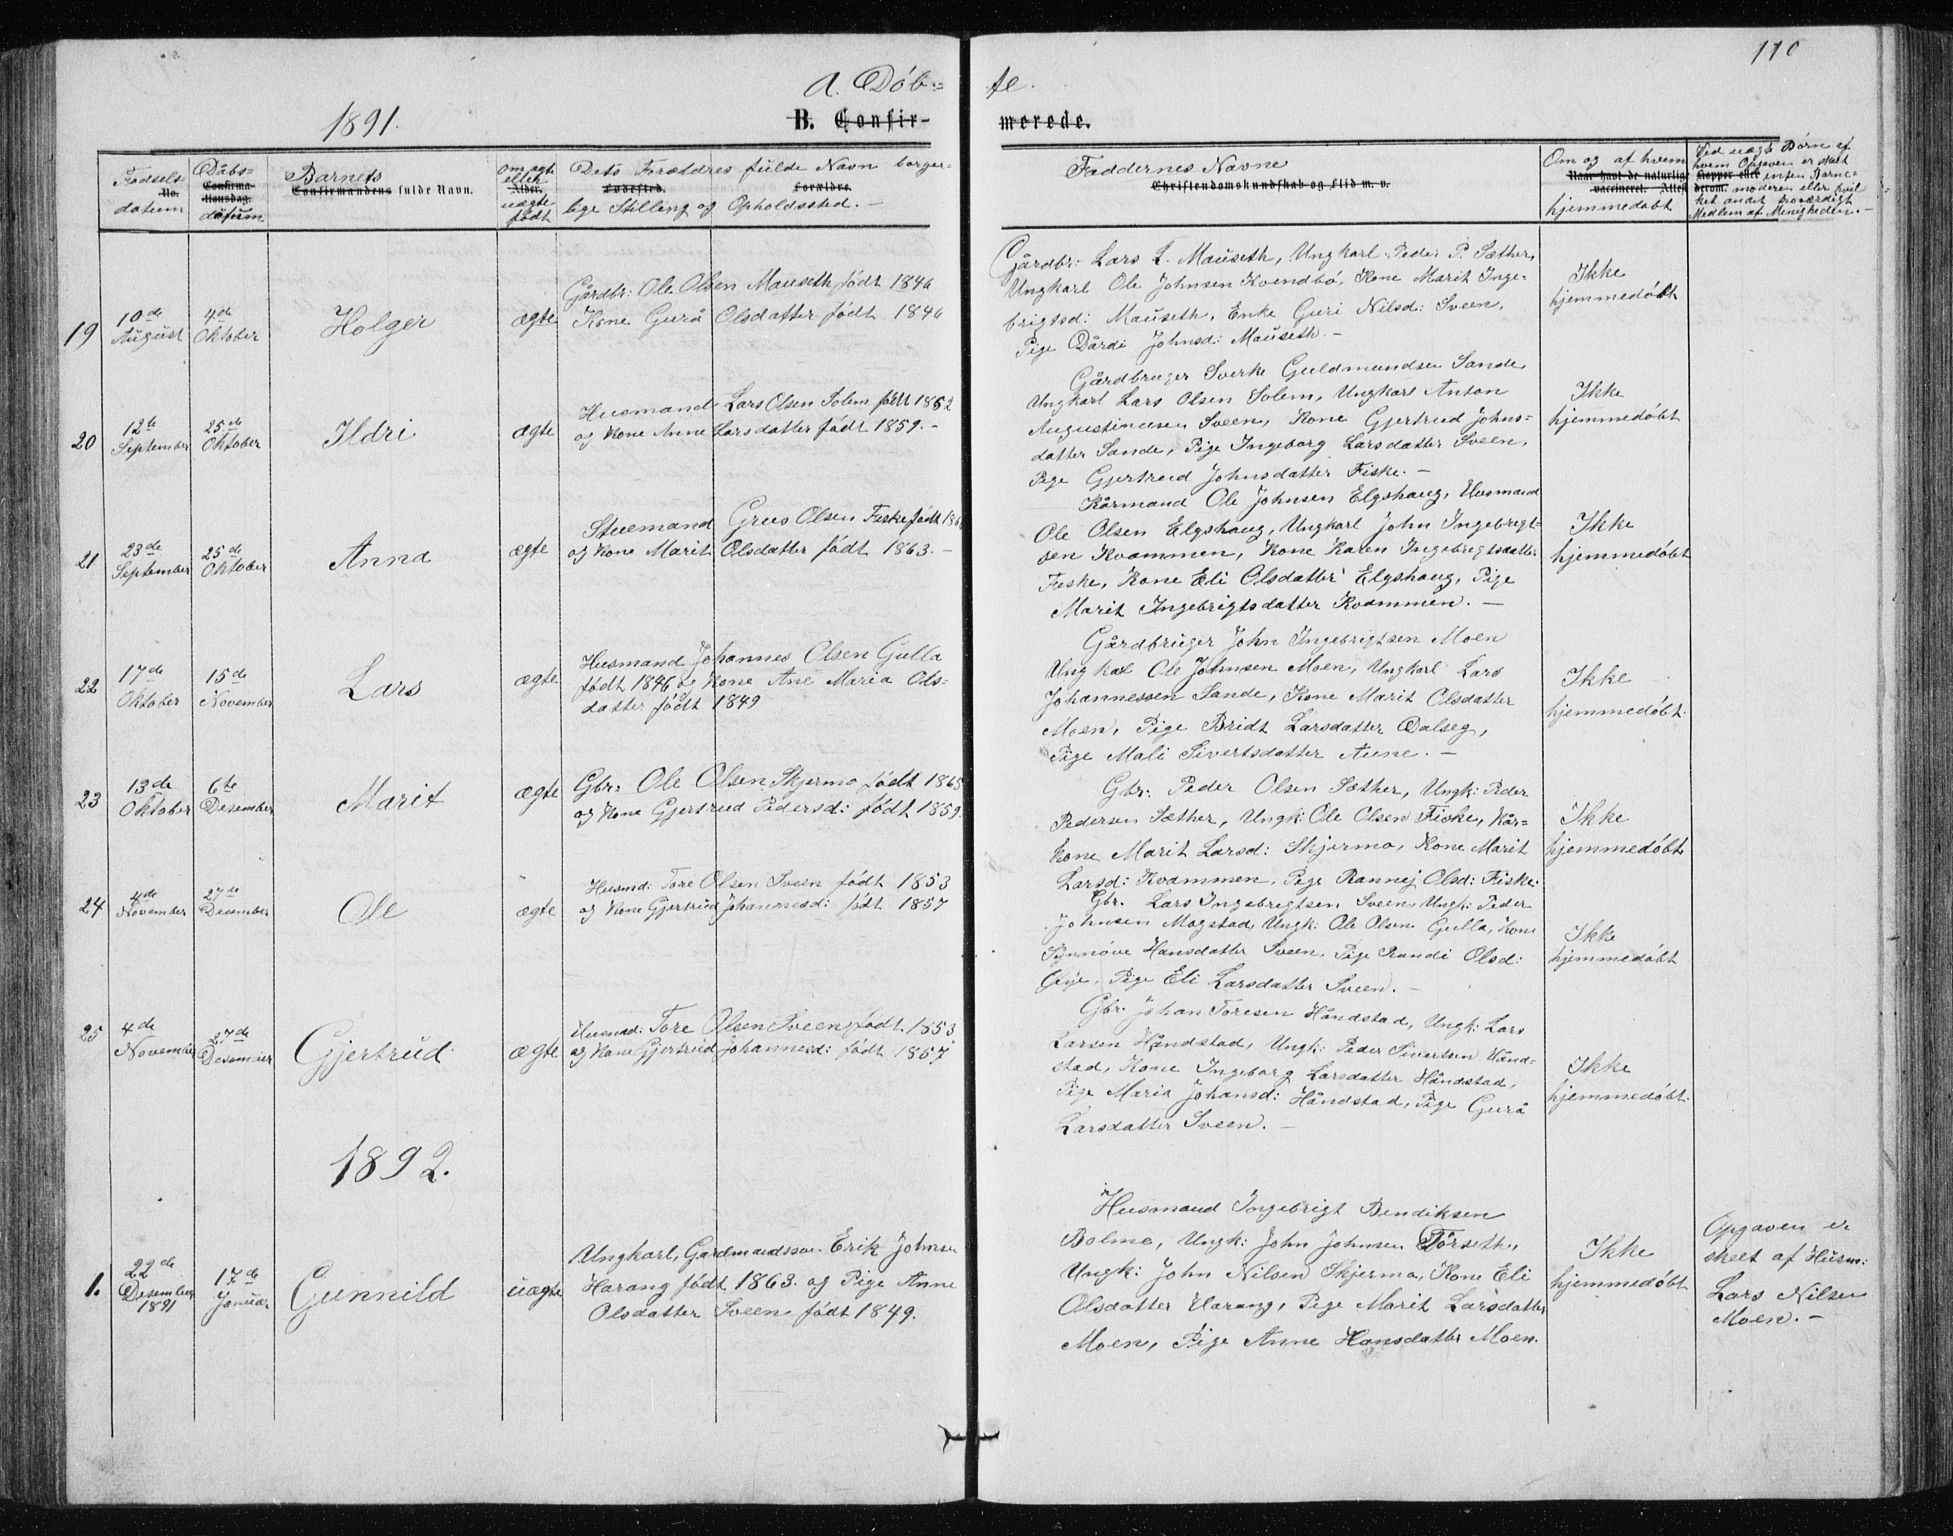 110
A. Døb=
te.
1891.
B. Confir-
merede.
Fødsels-
No.
datum
Dåbs-
Confirma-
tionsdag.
datum
Barnets
Confirmandens fulde Navn.
Om ægte
eller
Alder.
uægte
født
Dets Forældres fulde Navn borger-
Fødested. Forældre.
lige Stilling og Opholdssted. -
Faddernes Navne
Christendomskundskab og Flid m. v.
Om og af hvem
Naar havt de naturlige
vaccineret. Attest
hjemmedøbt
Ved uægte Børn af
hvem Opgaven er skeet
Kopper eller enten Barne-
derom. moderen eller hvil
ket andet troværdigt
Medlem af Menigheden. -
19
10de
August
4de
Oktober
Holger
ægte
Gårdbr: Ole Olsen Mauseth født 1846
Kone Gurå Olsdatter født 1846
Gårdbr: Lars L. Mauseth, Ungkarl Peder P. Sæther,
Ungkarl Ole Johnsen Kvendbø, Kone Marit Inge-
brigtsd: Mauseth, Enke Guri Nilsd: Sveen,
Pige Dårdi Johnsd: Mauseth. -
Ikke
hjemmedøbt
20
12te
September
25de
Oktober
Ildri
ægte
Husmand Lars Olsen Solem født 1852
og Kone Anne Larsdatter født 1859. -
Gårdbruger Sverke Guldmundsen Sande
Ungkarl Lars Olsen Solem, Ungkarl Anton
Augustinusen Sveen, Kone Gjertrud Johns-
datter Sande, Pige Ingeborg Larsdatter Sveen,
Pige Gjertrud Johnsdatter Fiske. -
Ikke
hjemmedøbt
21
23de
September
25de
Oktober
Anna
ægte
Stuemand Greus Olsen Fiske født 186
og Kone Marit Olsdatter født 1863. -
Kårmand Ole Johnsen Elgshaug, Husmand
Ole Olsen Elgshaug, Ungkarl John Ingebrigt-
sen Kvammen, Kone Karen Ingebrigtsdatter
Fiske, Kone Eli Olsdatter Elgshaug, Pige
Marit Ingebrigtsdatter Kvammen. -
Ikke
hjemmedøbt
22
17de
Oktober
15de
November
Lars
ægte
Husmand Johannes Olsen Gulla
født 1846 og Kone Ane Maria Ols-
datter født 1849
Gårdbruger John Ingebrigtsen Moen
Ungkal Ole Johnsen Moen, Ungkarl Lars
Johannessen Sande, Kone Marit Olsdatter
Moen, Pige Bridt Larsdatter Dalseg,
Pige Mali Sivertsdatter Aune. -
Ikke
hjemmedøbt.
23
13de
Oktober
6te
Desember
Marit
ægte
Gbr: Ole Olsen Skjermo født 1865
og Kone Gjertrud Pedersd: født 1859.
Gbr: Peder Olsen Sæther, Ungk: Peder
Pedersen Sæther, Ungk: Ole Olsen Fiske, Kår-
kone Marit Larsd: Skjermo, Kone Marit
Larsd: Kvammen, Pige Rannej Olsd: Fiske:
Ikke
hjemmedøbt
24
4de
November
27de
Desember
Ole
ægte
Husmd: Tore Olsen Sveen født 1853
og Kone Gjertrud Johannesd: født 1857
Gbr. Lars Ingebrigtsen Sveen, Ungk: Peder
Johnsen Magstad, Ungk: Ole Olsen Gulla, Kone
Synnøve Hansdatter Sveen, Pige Randi Olsd:
Øye, Pige Eli Larsdatter Sveen. -
Ikke
hjemmedøbt
25
4de
November
27de
Desember
Gjertrud
ægte
Husmd: Tore Olsen Sveen født 1853
og Kone Gjertrud Johannesd: født 1857
Gbr. Johan Toresen Håndstad, Ungk: Lars
Larsen Håndstad, Ungk: Peder Sivertsen Hånd-
stad, Kone Ingeborg Larsdatter Håndstad,
Pige Maria Johansd: Håndstad, Pige Gurå
Larsdatter Sveen. -
Ikke
hjemmedøbt.
1892.
1.
22de
Desember
1891
17de
Januar
Gunnild
uægte
Ungkarl, Gardmandssøn Erik Johnsen
Harang født 1863. og Pige Anne
Olsdatter Sveen født 1849.
Husmand Ingebrigt Bendiksen
Bolme, Ungk: John Johnsen Tørseth,
Ungk: John Nilsen Skjermo, Kone Eli
Olsdatter Harang, Pige Marit Larsdatter
Moen, Pige Anne Hansdatter Moen.
Ikke
hjemmedøbt
Opgaven er
skeet af Husm:
Lars Nilsen
Moen. -